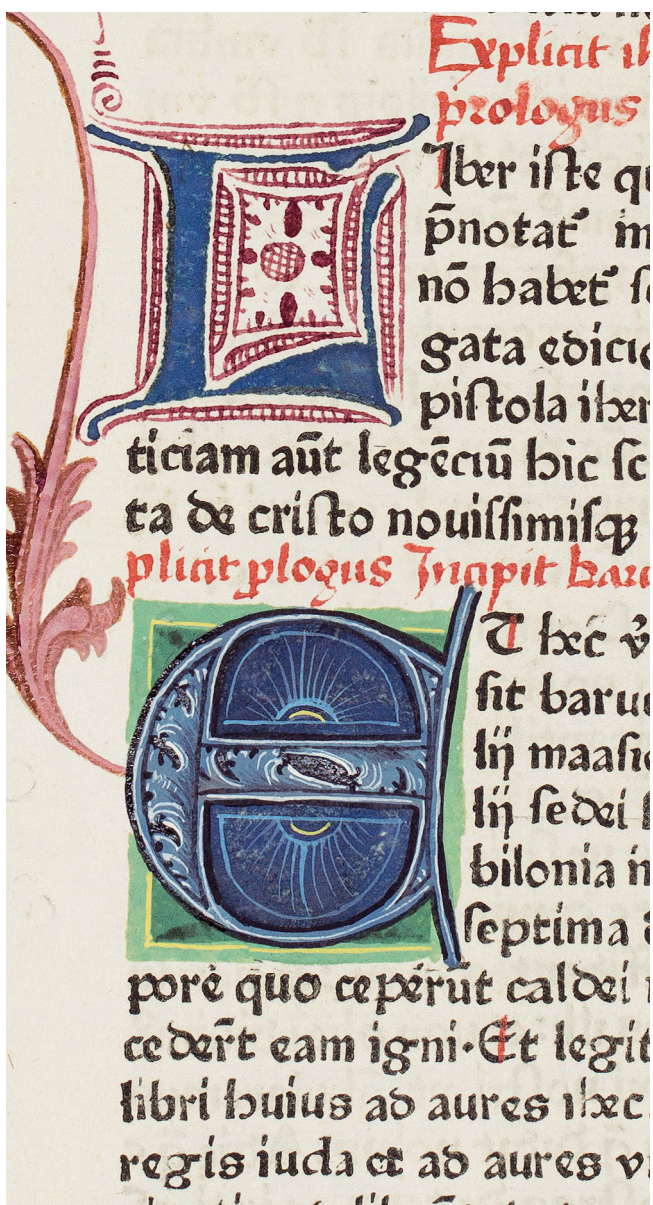 Explicit
prologus
Liber iste qu
p̄notat᷑ in
nō habet᷑
gata edicio
pistola iher
ticiam aūt legēciū hic sc
ta de cristo nouissimisqꝫ
plicit ꝓlogus Incipit baru
ET hec v̄
sit baruc
lij maasie
lij sedei
bilonia in
septima
pore quo ceperūt caldei
cederūt eam igni·Et legit
libri huius ad aures ihec
regis iuda et ad aures